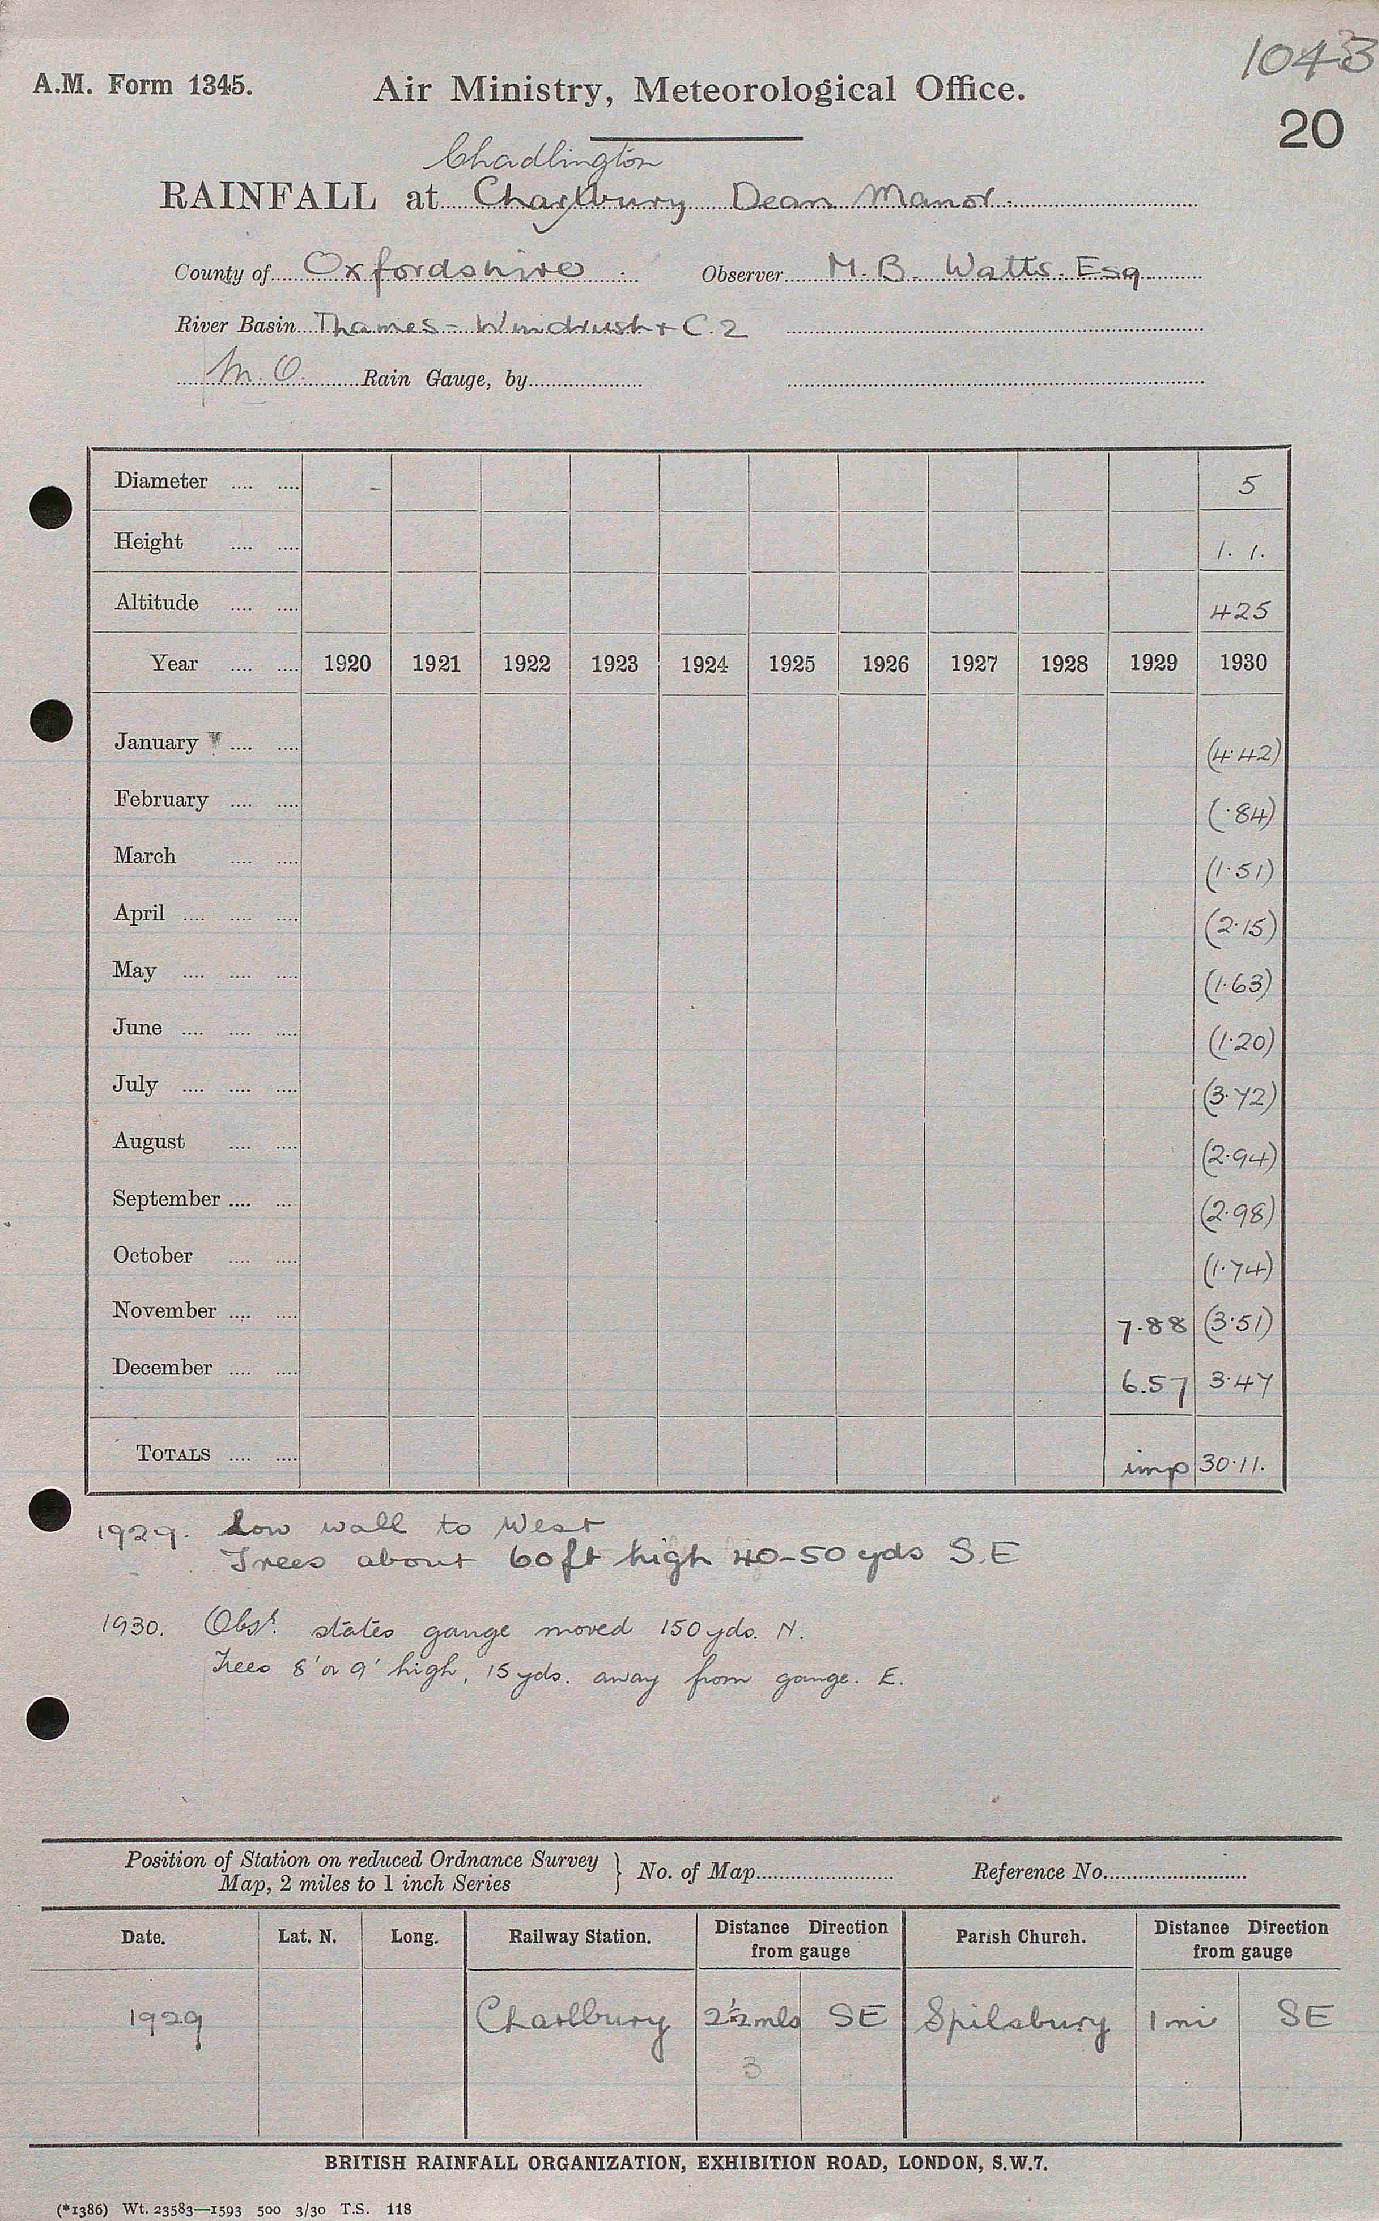 1043
A.M. Form 1345. Air Ministry, Meteorological Office.
20
Chadlington
RAINFALL at Charlbury Dean Manor.
County of Oxfordshire Observer M. B. Watts. Esq
River Basin Thames - Windrush + C. 2
M. O. Rain Gauge, by
Diameter 5
Height 1. 1.
Altitude 425
Year 1920 1921 1922 1923 1924 1925 1926 1927 1928 1929 1930
January (4.42)
February (.84)
March (1.51)
April (2.15)
May (1.63)
June (1.20)
July (3.72)
August (2.94)
September (2.98)
October (1.74)
November 7.88 (3.51)
December 6.57 3.47
TOTALS imp 30.11.
1929. Low wall to West
Trees about 60ft high 40-50 yds S.E
1930. Obsr. states gauge moved 150 yds. N.
Trees 8' or 9' high, 15 yds. away from gauge. E.
Position of Station on reduced Ordnance Survey } No. of Map Reference No.
Map, 2 miles to 1 inch Series
Date. Lat. N. Long. Railway Station. Distance Direction from gauge Parish Church. Distance Direction from gauge
1929 Charlbury 2½ mls SE Spilsbury 1 mi SE
3
BRITISH RAINFALL ORGANIZATION, EXHIBITION ROAD, LONDON, S.W.7.
(*1386) Wt. 23583—1593 500 3/30 T.S. 118